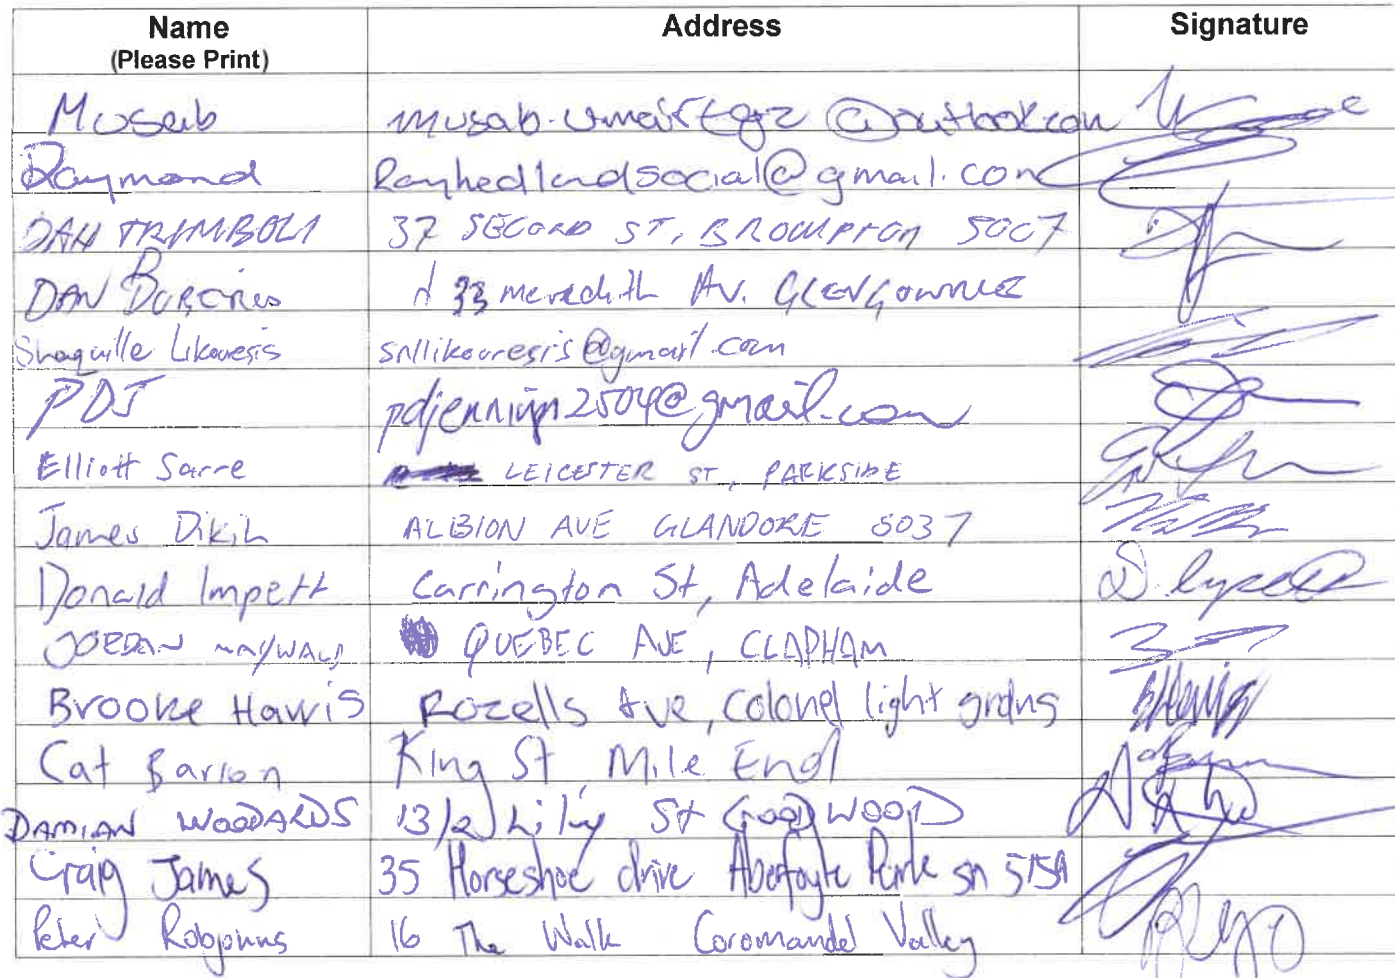 Name Address Signature
(Please Print)
Musaib
Raymond Rayhedlandsocial@gmail.com
DAN TRIMBOLI 37 SECOND ST, BROMPTON 5007
DAN 33 Meredith Av. GLENGOWRIE
Shaquille Likouresis snllikouresis@gmail.com
PDJ pdjennings2504@gmail.com
Elliott Sarre LEICESTER ST, PARKSIDE
James Dikih ALBION AVE GLANDORE 5037
Donald Impett Carrington St, Adelaide
JORDAN MAYWALD QUEBEC AVE, CLAPHAM
Brooke Harris Rozells Ave, Colonel light grdns
Cat Barron King St Mile End
DAMIAN WOODARDS 13/2 Lily St GOODWOOD
Craig James 35 Horseshoe drive Aberfoyle Park SA 5159
Peter Robjohns 16 The Walk Coromandel Valley